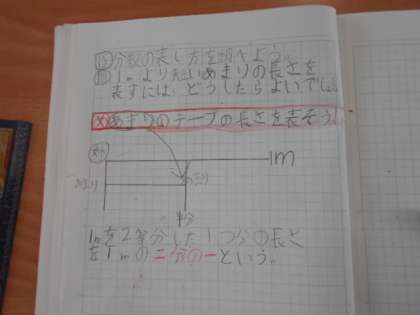 分数の表し方を調べよう。
1mより短いあまりの長さを
表すには、どうしたらよいでし
め あまりのテープの長さを表そう。
1m
あまり
半分
1mを2等分した1つ分の長さ
を1mの二分の一という。